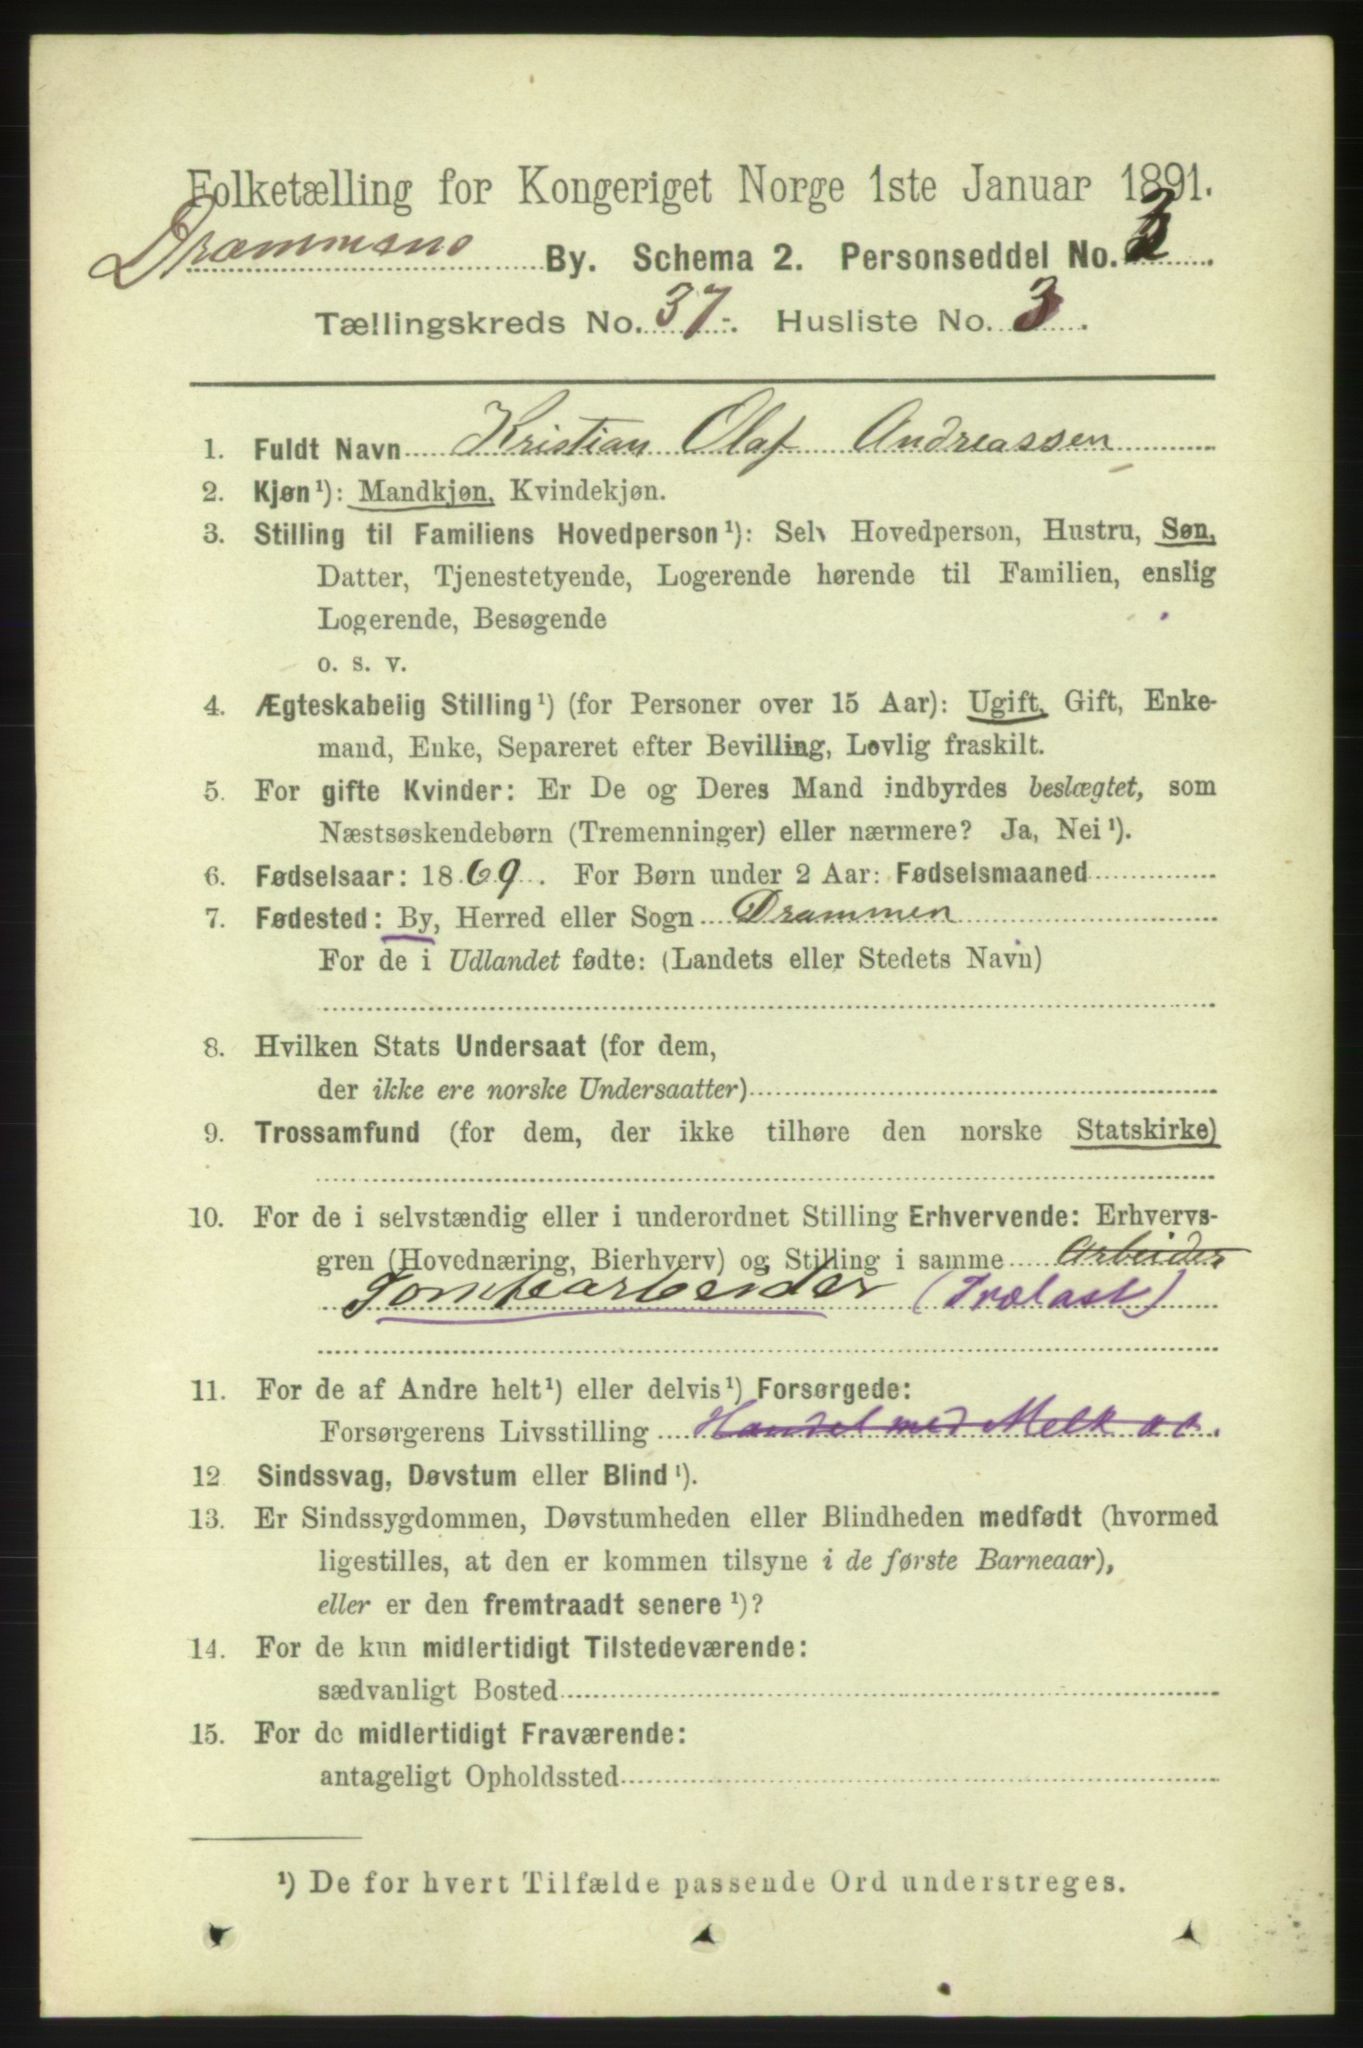 Folketælling for Kongeriget Norge 1ste Januar 1891.
Drammens By. Schema 2. Personseddel No. 3.
Tællingskreds No. 37. Husliste No. 3.
1. Fuldt Navn Kristian Olaf Andreassen
2. Kjøn¹): Mandkjøn, Kvindekjøn.
3. Stilling til Familiens Hovedperson¹): Selv Hovedperson, Hustru, Søn,
Datter, Tjenestetyende, Logerende hørende til Familien, enslig
Logerende, Besøgende
o. s. v.
4. Ægteskabelig Stilling¹) (for Personer over 15 Aar): Ugift, Gift, Enke-
mand, Enke, Separeret efter Bevilling, Lovlig fraskilt.
5. For gifte Kvinder: Er De og Deres Mand indbyrdes beslægtet, som
Næstsøskendebørn (Tremenninger) eller nærmere? Ja, Nei¹).
6. Fødselsaar: 1869. For Børn under 2 Aar: Fødselsmaaned
7. Fødested: By, Herred eller Sogn Drammen
For de i Udlandet fødte: (Landets eller Stedets Navn)
8. Hvilken Stats Undersaat (for dem,
der ikke ere norske Undersaatter)
9. Trossamfund (for dem, der ikke tilhøre den norske Statskirke)
10. For de i selvstændig eller i underordnet Stilling Erhvervende: Erhvervs-
gren (Hovednæring, Bierhverv) og Stilling i samme Arbeider
Tomtearbeider (Trælast)
11. For de af Andre helt¹) eller delvis¹) Forsørgede:
Forsørgerens Livsstilling Handel med Melk oc.
12 Sindssvag, Døvstum eller Blind¹).
13. Er Sindssygdommen, Døvstumheden eller Blindheden medfødt (hvormed
ligestilles, at den er kommen tilsyne i de første Barneaar),
eller er den fremtraadt senere¹)?
14. For de kun midlertidigt Tilstedeværende:
sædvanligt Bosted
15. For de midlertidigt Fraværende:
antageligt Opholdssted
¹) De for hvert Tilfælde passende Ord understreges.